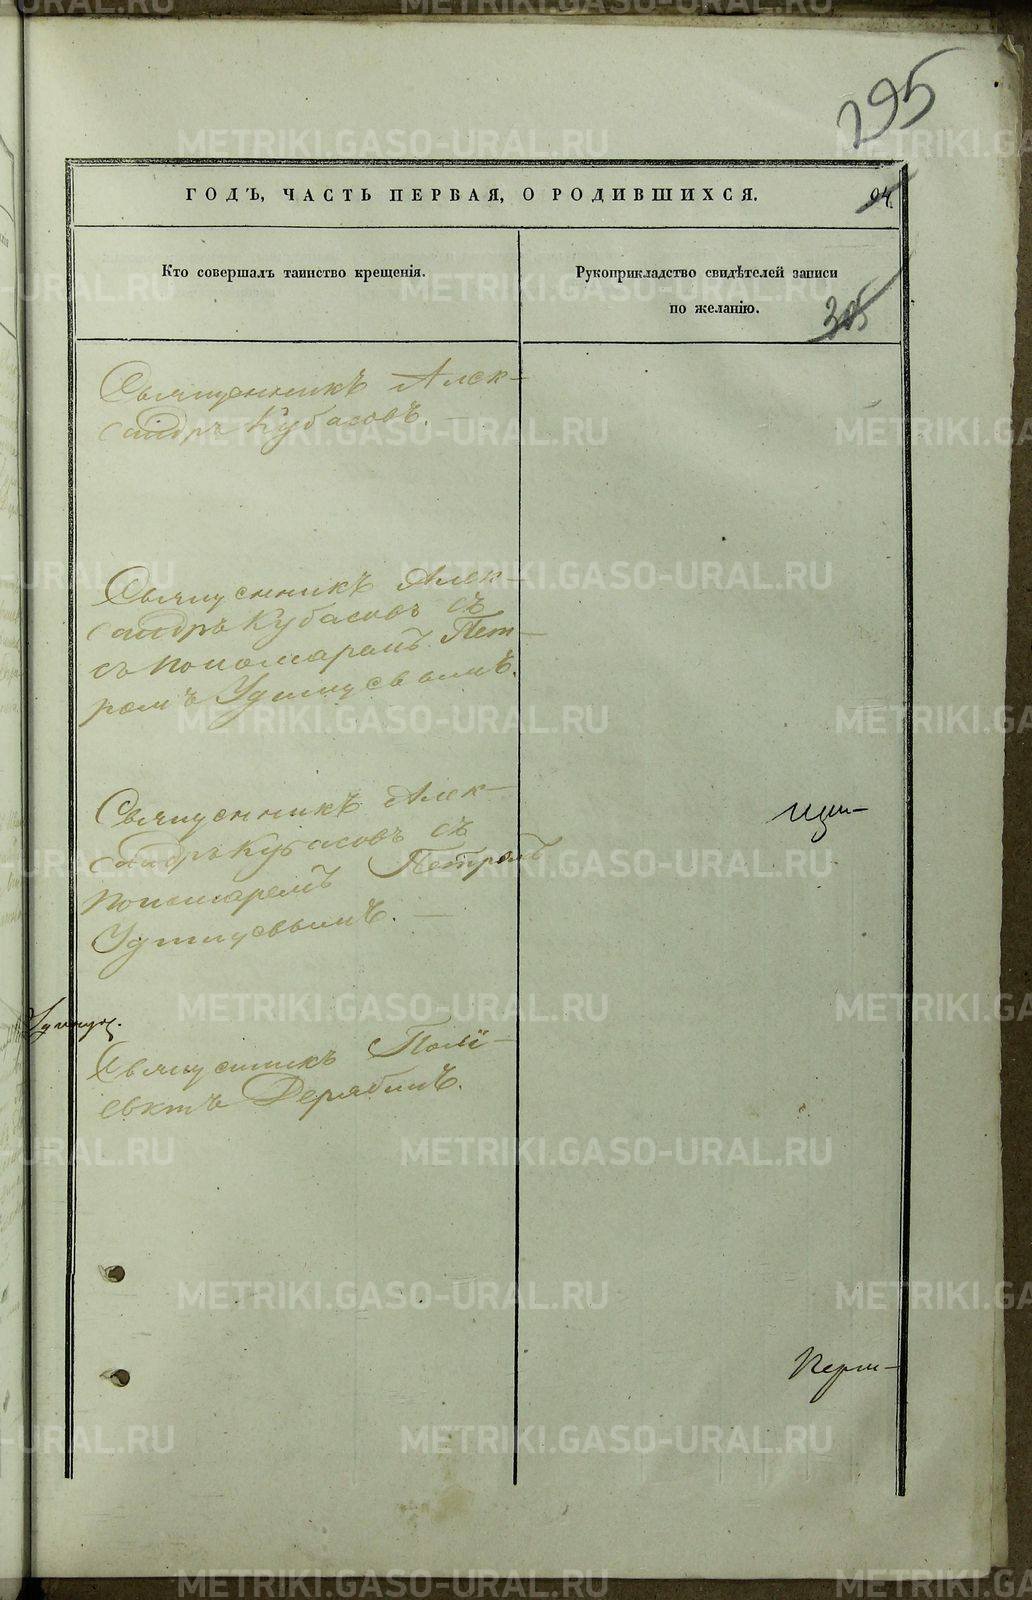 295
ГОДЪ, ЧАСТЬ ПЕРВАЯ, О РОДИВШИХСЯ.
94.
Кто совершалъ таинство крещенія.
Рукоприкладство свидѣтелей записи
по желанію.
305
Священникъ Алек-
сандръ Кубасовъ. —
Священникъ Алек-
сандръ Кубасовъ съ
съ пономаремъ Пет-
ромъ Удинцевымъ.
Священникъ Алек-
сандръ Кубасовъ съ
пономаремъ Петромъ
Удинцевымъ. —
Священникъ Поліе-
евктъ Дерябинъ.
METRIKI.GASO-URAL.RU